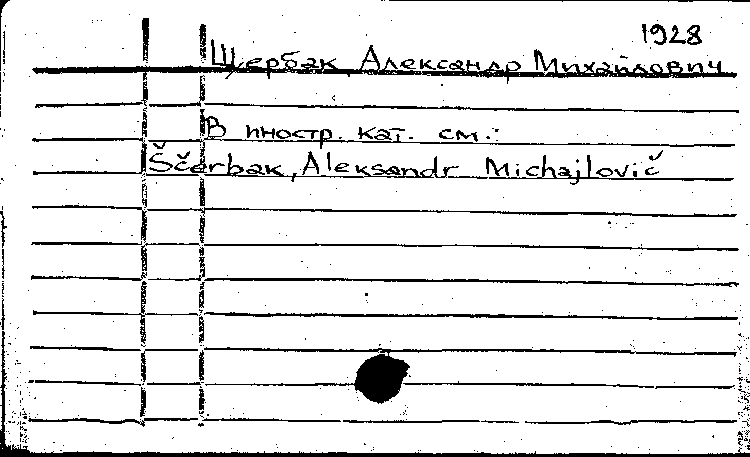 1928
Щербак, Александр Михайлович
В иностр. кат. см.:
Ščerbak, Aleksandr Michajlovič